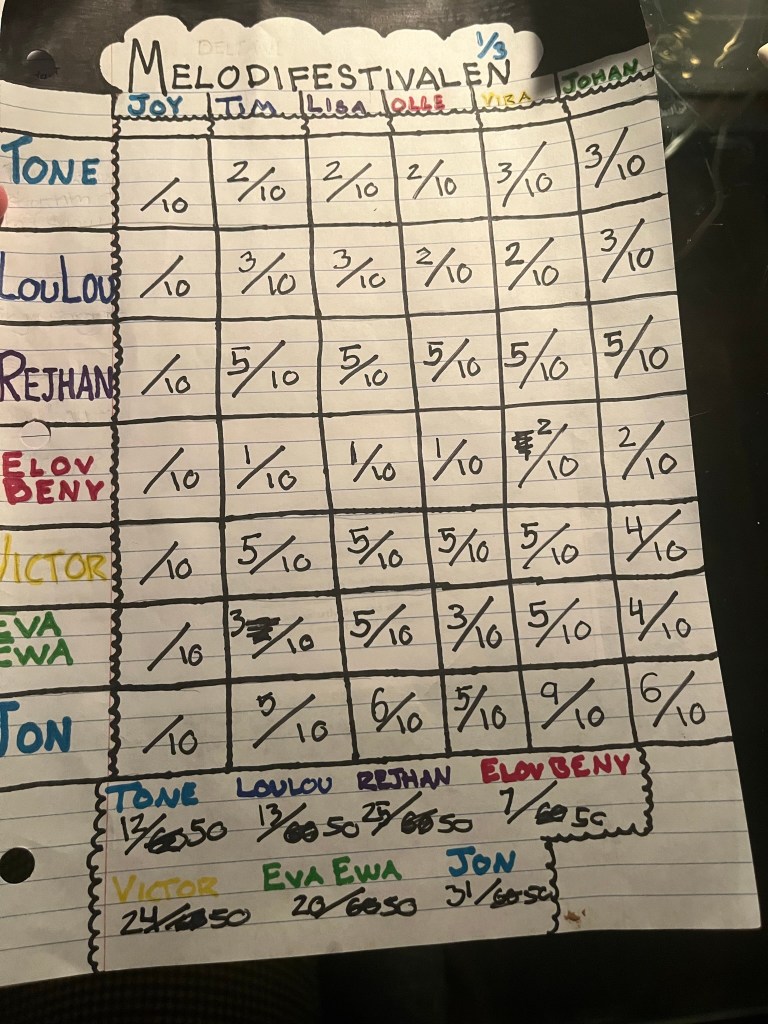 MELODIFESTIVALEN 1/3
JOY TIM LISA OLLE VIRA JOHAN
TONE /10 2/10 2/10 2/10 3/10 3/10
LOULOU /10 3/10 3/10 2/10 2/10 3/10
REJHAN /10 5/10 5/10 5/10 5/10 5/10
ELOV BENY /10 1/10 1/10 1/10 2/10 2/10
VICTOR /10 5/10 5/10 5/10 5/10 4/10
EVA EWA /10 3/10 5/10 3/10 5/10 4/10
JON /10 5/10 6/10 5/10 9/10 6/10
TONE LOULOU REJHAN ELOV BENY
12/50 13/50 25/50 7/50
VICTOR EVA EWA JON
24/50 20/50 31/50